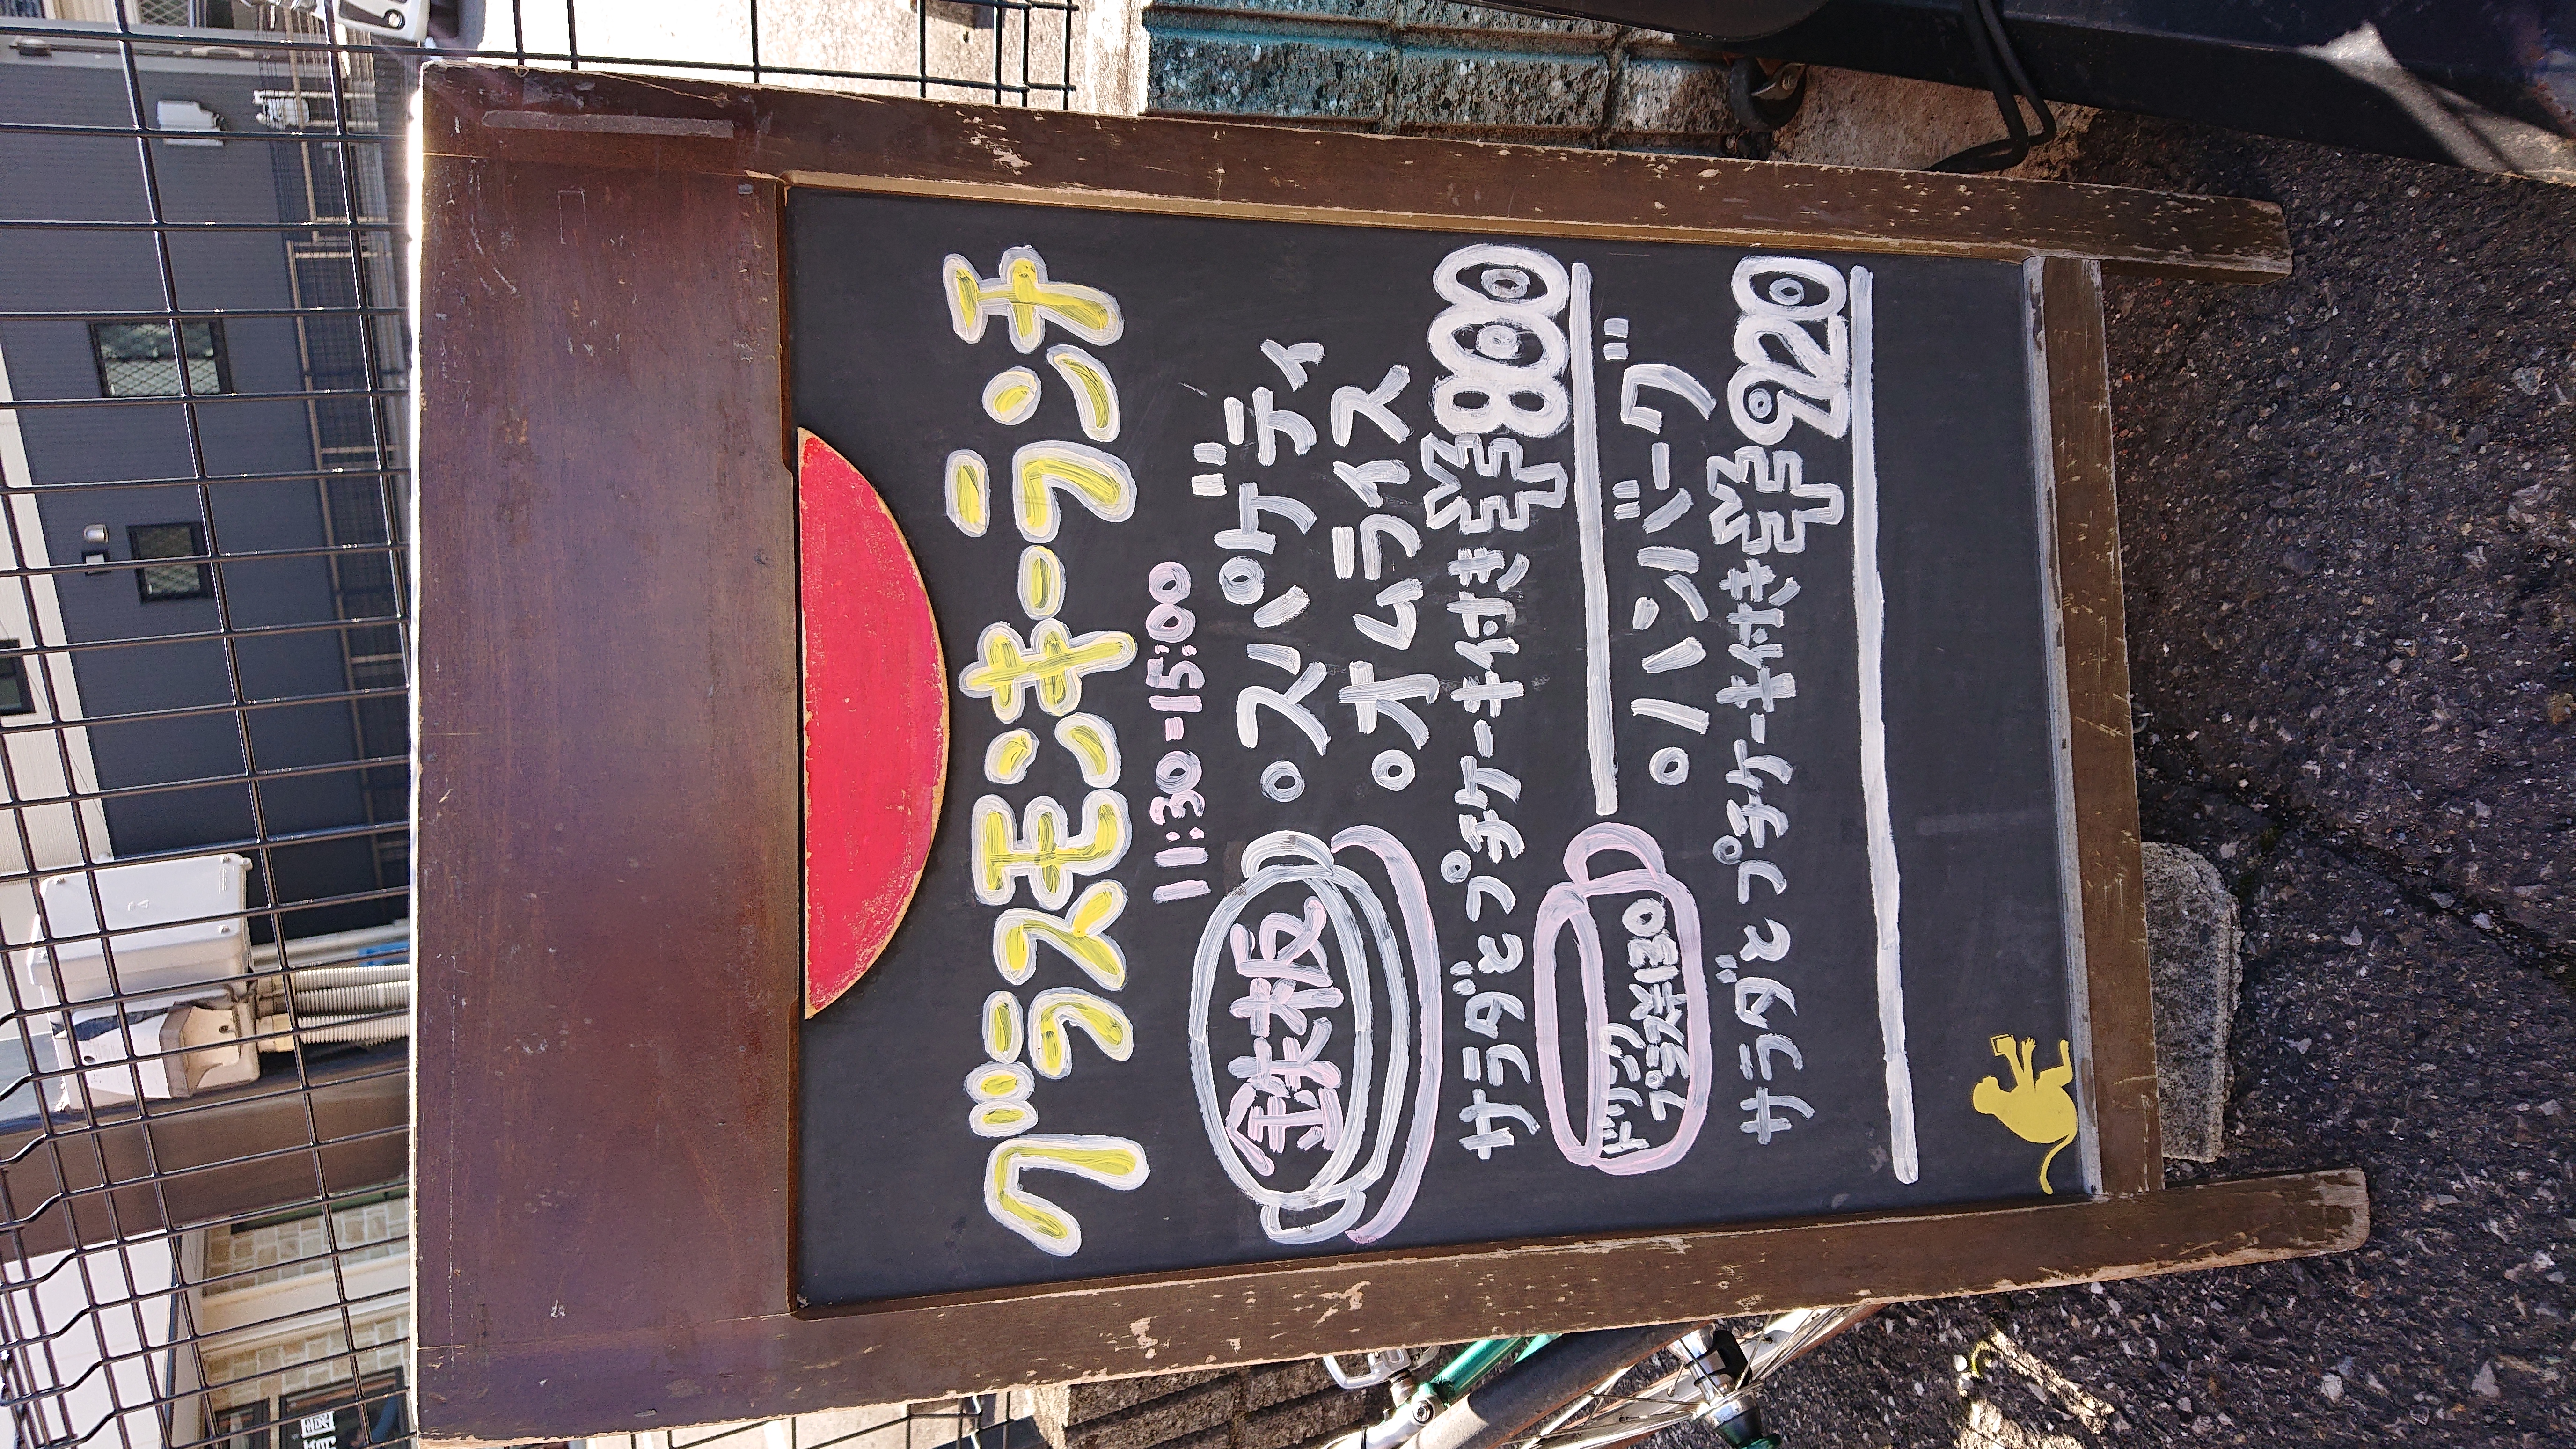 グラスモンキーランチ
11:30-15:00
鉄板
○スパゲティ
○オムライス
サラダとプチケーキ付き¥800
ドリンク
プラス¥130
○ハンバーグ
サラダとプチケーキ付き¥920